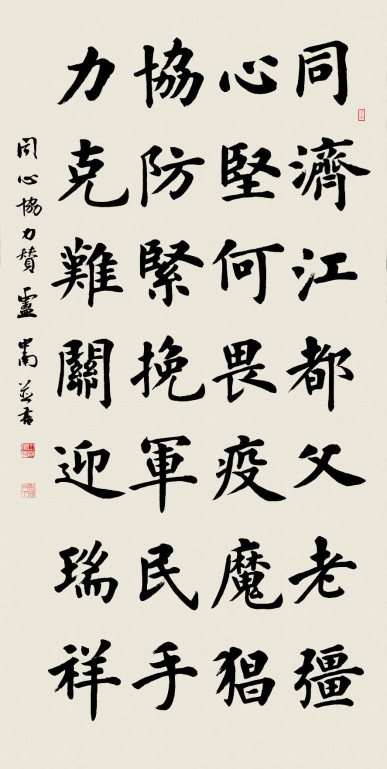 同濟江都父老彊
心堅何畏疫魔猖
協防緊挽軍民手
力克難關迎瑞祥
同心協力贊